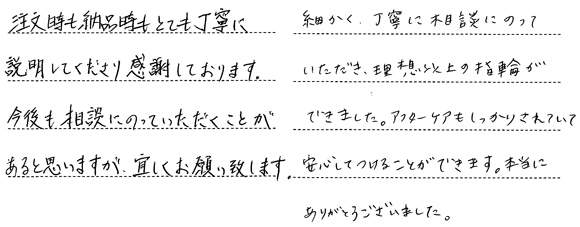 注文時も納品時もとても丁寧に
説明してくださり感謝しております。
今後も相談にのっていただくことが
あると思いますが、宜しくお願い致します。
細かく、丁寧に相談にのって
いただき、理想以上の指輪が
できました。アフターケアもしっかりされていて
安心してつけることができます。本当に
ありがとうございました。